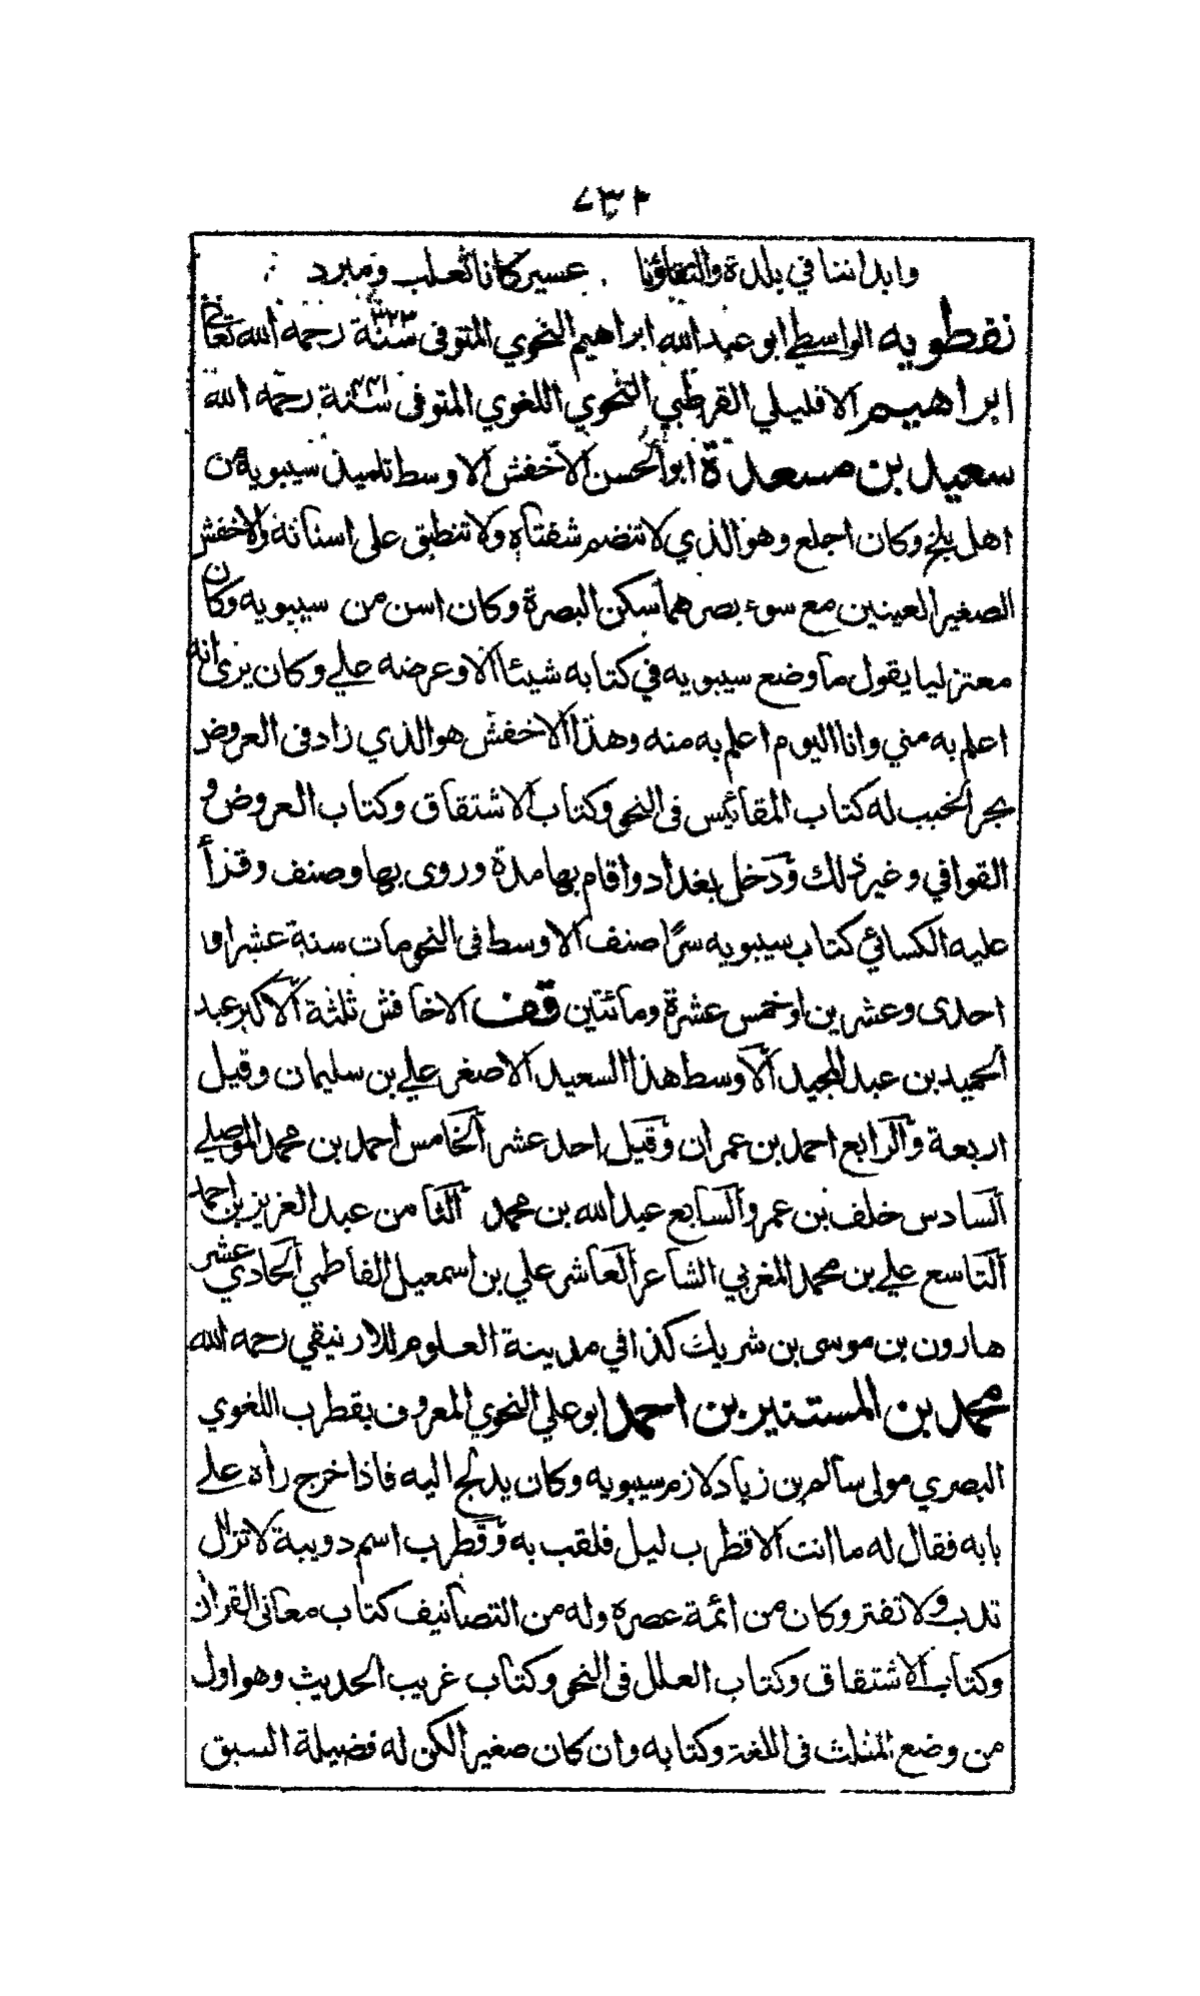 ٧٣٢
وابداننا في بلدة والتقاؤنا عسير كانا ثعلب ومبرد
نفطويه الواسطي ابو عبد الله ابراهيم النحوي المتوفى سنة ٣٢٣ رحمه الله تعالى
ابراهيم الافليلي القرطبي النحوي اللغوي المتوفى سنة رحمه الله
سعيد بن مسعدة ابو الحسن الاخفش الاوسط تلميذ سيبويه من
اهل بلخ وكان اجلع وهو الذي لا تنضم شفتاه ولا تنطبق على اسنانه والاخفش
الصغير العينين مع سوء بصرهما سكن البصرة وكان اسن من سيبويه وكان
معتزليا يقول ما وضع سيبويه في كتابه شيئا الا وعرضه علي وكان يرى انه
اعلم به مني وانا اليوم اعلم به منه وهذا الاخفش هو الذي زاد في العروض
بحر الخبب له كتاب المقائيس في النحو وكتاب الاشتقاق وكتاب العروض و
القوافي وغير ذلك ودخل بغداد واقام بها مدة وروى بها وصنف وقرأ
عليه الكسائي كتاب سيبويه سرًا صنف الاوسط في النحو مات سنة عشر او
احدى وعشرين او خمس عشرة ومائتين قف الاخافش ثلثة الاكبر عبد
الحميد بن عبد المجيد الاوسط هذا السعيد الاصغر علي بن سليمان وقيل
اربعة والرابع احمد بن عمران وقيل احد عشر الخامس احمد بن محمد الموصلي
السادس خلف بن عمر والسابع عبد الله بن محمد الثامن عبد العزيز بن احمد
التاسع علي بن محمد المغربي الشاعر العاشر علي بن اسمعيل الفاطمي الحادي عشر
هارون بن موسى بن شريك كذا في مدينة العلوم للارنيقي رحمه الله
محمد بن المستنير بن احمد ابو علي النحوي المعروف بقطرب اللغوي
البصري مولى سالم بن زياد لازم سيبويه وكان يدلج اليه فاذا خرج رأه على
بابه فقال له ما انت الا قطرب ليل فلقب به وقطرب اسم دويبة لا تزال
تدب ولا تفتر وكان من ائمة عصره وله من التصانيف كتاب معاني القرآن
وكتاب الاشتقاق وكتاب العلل في النحو وكتاب غريب الحديث وهو اول
من وضع المثلث في اللغة وكتابه وان كان صغيرا لكن له فضيلة السبق